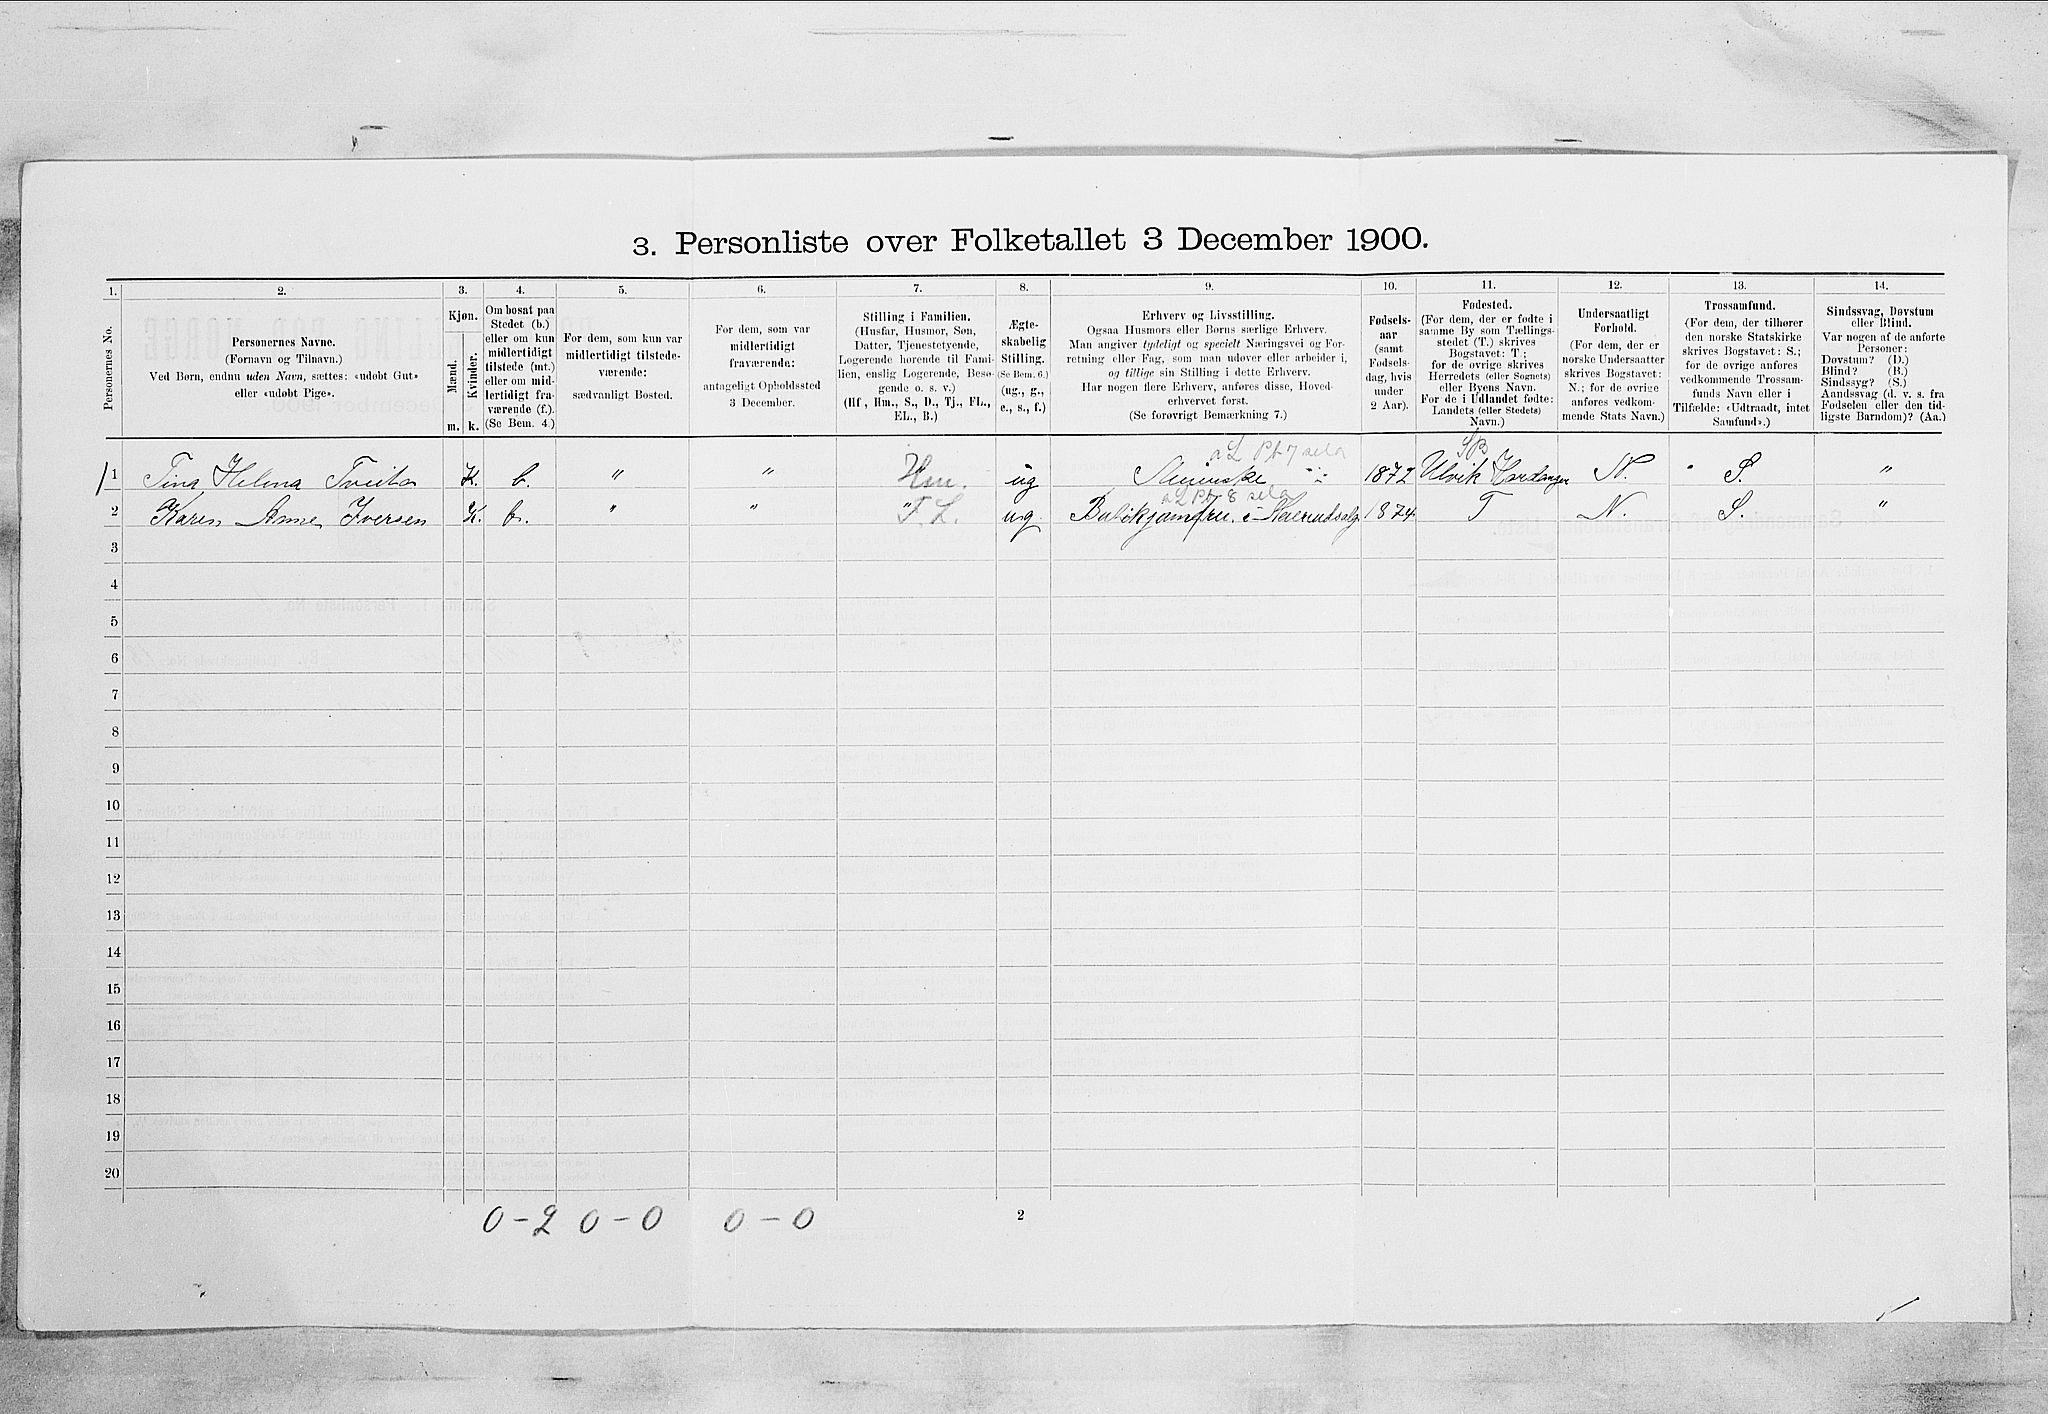 3. Personliste over Folketallet 3 December 1900.
1.
2.
3.
4.
5.
6.
7.
8.
9.
10.
11.
12.
13.
14.
Personernes No.
Personernes Navne.
(Fornavn og Tilnavn.)
Ved Børn, endnu uden Navn, sættes: «udøbt Gut»
eller «udøbt Pige».
Kjøn.
Mænd.
Kvinder.
m.
k.
Om bosat paa
Stedet (b.)
eller om kun
midlertidigt
tilstede (mt.)
eller om mid-
lertidigt fra-
værende (f.).
(Se Bem. 4.)
For dem, som kun var
midlertidigt tilstede-
værende:
sædvanligt Bosted.
For dem, som var
midlertidigt
fraværende:
antageligt Opholdssted
3 December.
Stilling i Familien.
(Husfar, Husmor, Søn,
Datter, Tjenestetyende,
Logerende hørende til Fami-
lien, enslig Logerende, Besø-
gende o. s. v.)
(Hf., Hm., S., D., Tj., FL.,
EL., B.)
Ægte-
skabelig
Stilling.
(Se Bem. 6.)
(ug., g.,
e., s., f.)
Erhverv og Livsstilling.
Ogsaa Husmors eller Børns særlige Erhverv.
Man angiver tydeligt og specielt Næringsvei og For-
retning eller Fag, som man udøver eller arbeider i,
og tillige sin Stilling i dette Erhverv.
Har nogen flere Erhverv, anføres disse, Hoved-
erhvervet først.
(Se forøvrigt Bemærkning 7.)
Fødsels-
aar
(samt
Fødsels-
dag, hvis
under
2 Aar).
Fødested.
(For dem, der er fødte i
samme By som Tællings-
stedet (T.) skrives
Bogstavet: T;
for de øvrige skrives
Herredets (eller Sognets)
eller Byens Navn.
For de i Udlandet fødte:
Landets (eller Stedets)
Navn.)
Undersaatligt
Forhold.
(For dem, der er
norske Undersaatter
skrives Bogstavet:
N.; for de øvrige
anføres vedkom-
mende Stats Navn.)
Trossamfund.
(For dem, der tilhører
den norske Statskirke
skrives Bogstavet: S.;
for de øvrige anføres
vedkommende Trossam-
funds Navn eller i
Tilfælde: «Udtraadt, intet
Samfund».)
Sindssvag, Døvstum
eller Blind.
Var nogen af de anførte
Personer:
Døvstum? (D.)
Blind? (B.)
Sindssyg? (S.)
Aandssvag (d. v. s. fra
Fødselen eller den tid-
ligste Barndom)? (Aa.)
1 Tina Helena K. b. " " Hm. ug 1872 Ulvik Hardanger N. S. "
2 Karen Anne Iversen K. b. " " F.L. ug. 1874 T N. S. "
3
4
5
6
7
8
9
10
11
12
13
14
15
16
17
18
19
20
0-2 0-0 0-0
2